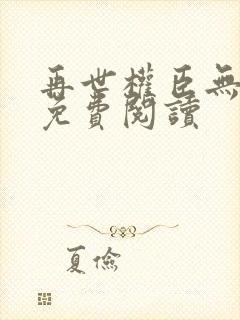 再世權臣無
免費閱讀
夏儉